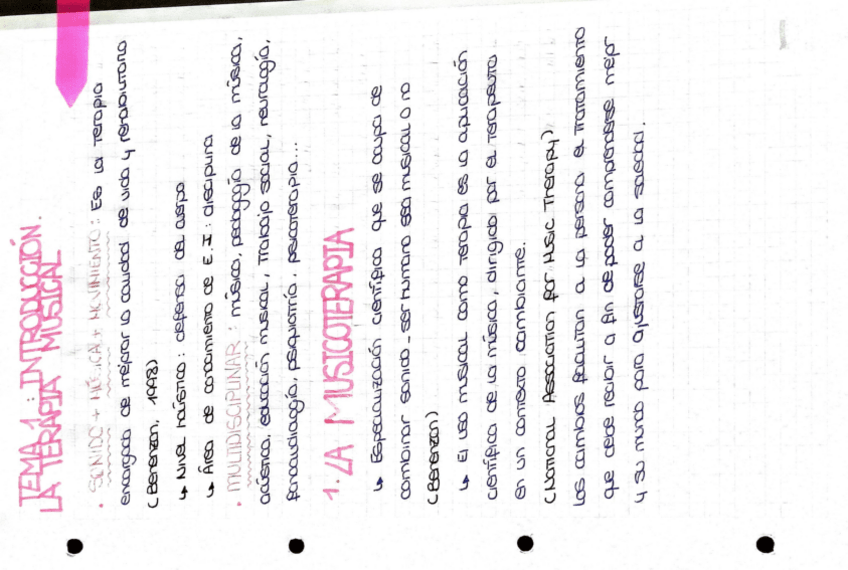 TEMA 1: INTRODUCCIÓN.
LA TERAPIA MUSICAL
• SONIDO + MÚSICA + MOVIMIENTO: Es la terapia
encargada de mejorar la calidad de vida y rehabilitarla
(Benenzon, 1998)
↳ Nivel holístico: defensa del cuerpo
↳ Área de conocimiento de E.I: disciplina
• MULTIDISCIPLINAR: música, pedagogía de la música,
acústica, educación musical, trabajo social, neurología,
fonoaudiología, psiquiatría, psicoterapia...
1. LA MUSICOTERAPIA
↳ Especialización científica que se ocupa de
combinar sonido - ser humano sea musical o no
(Benenzon)
↳ El uso musical como terapia es la aplicación
científica de la música, dirigido por el terapeuta
en un contexto cambiante.
(National Association for Music Therapy)
Los cambios facilitan a la persona el tratamiento
que debe recibir a fin de poder comprenderse mejor
y su mundo para ajustarse a la sociedad.